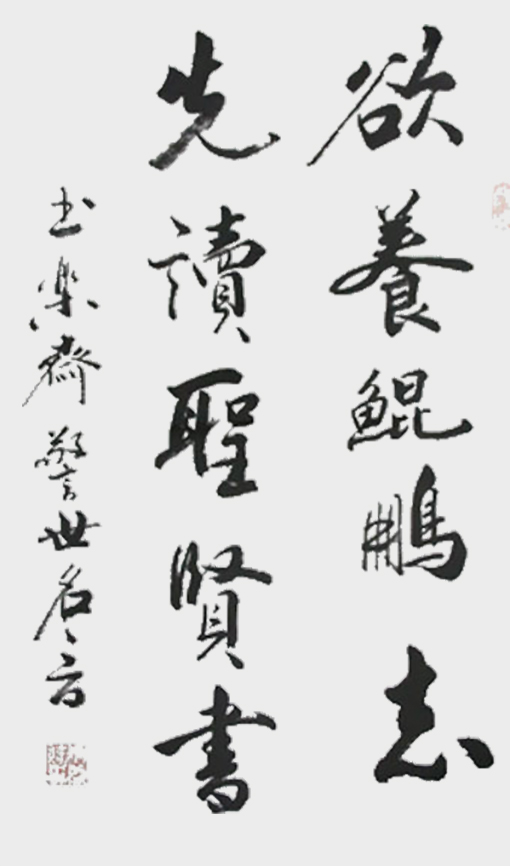 欲養鯤鵬志
先讀聖賢書
樂齋警世名言